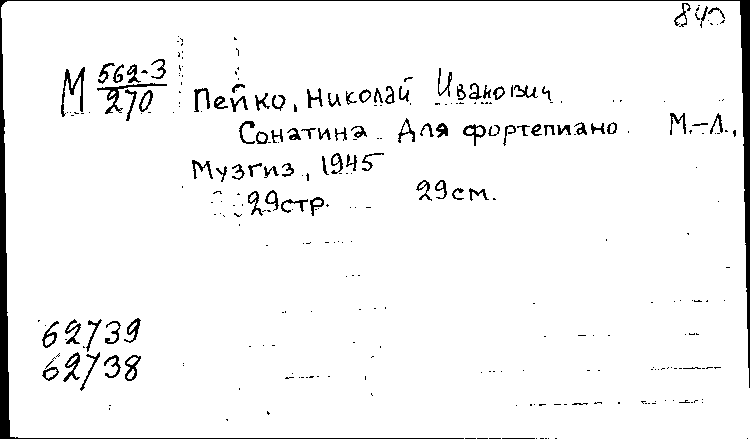 840
М 562-3
270
Пейко, Николай Иванович
Сонатина. Для фортепиано. М.-Л.,
Музгиз, 1945
29стр. 29см.
62739
62738